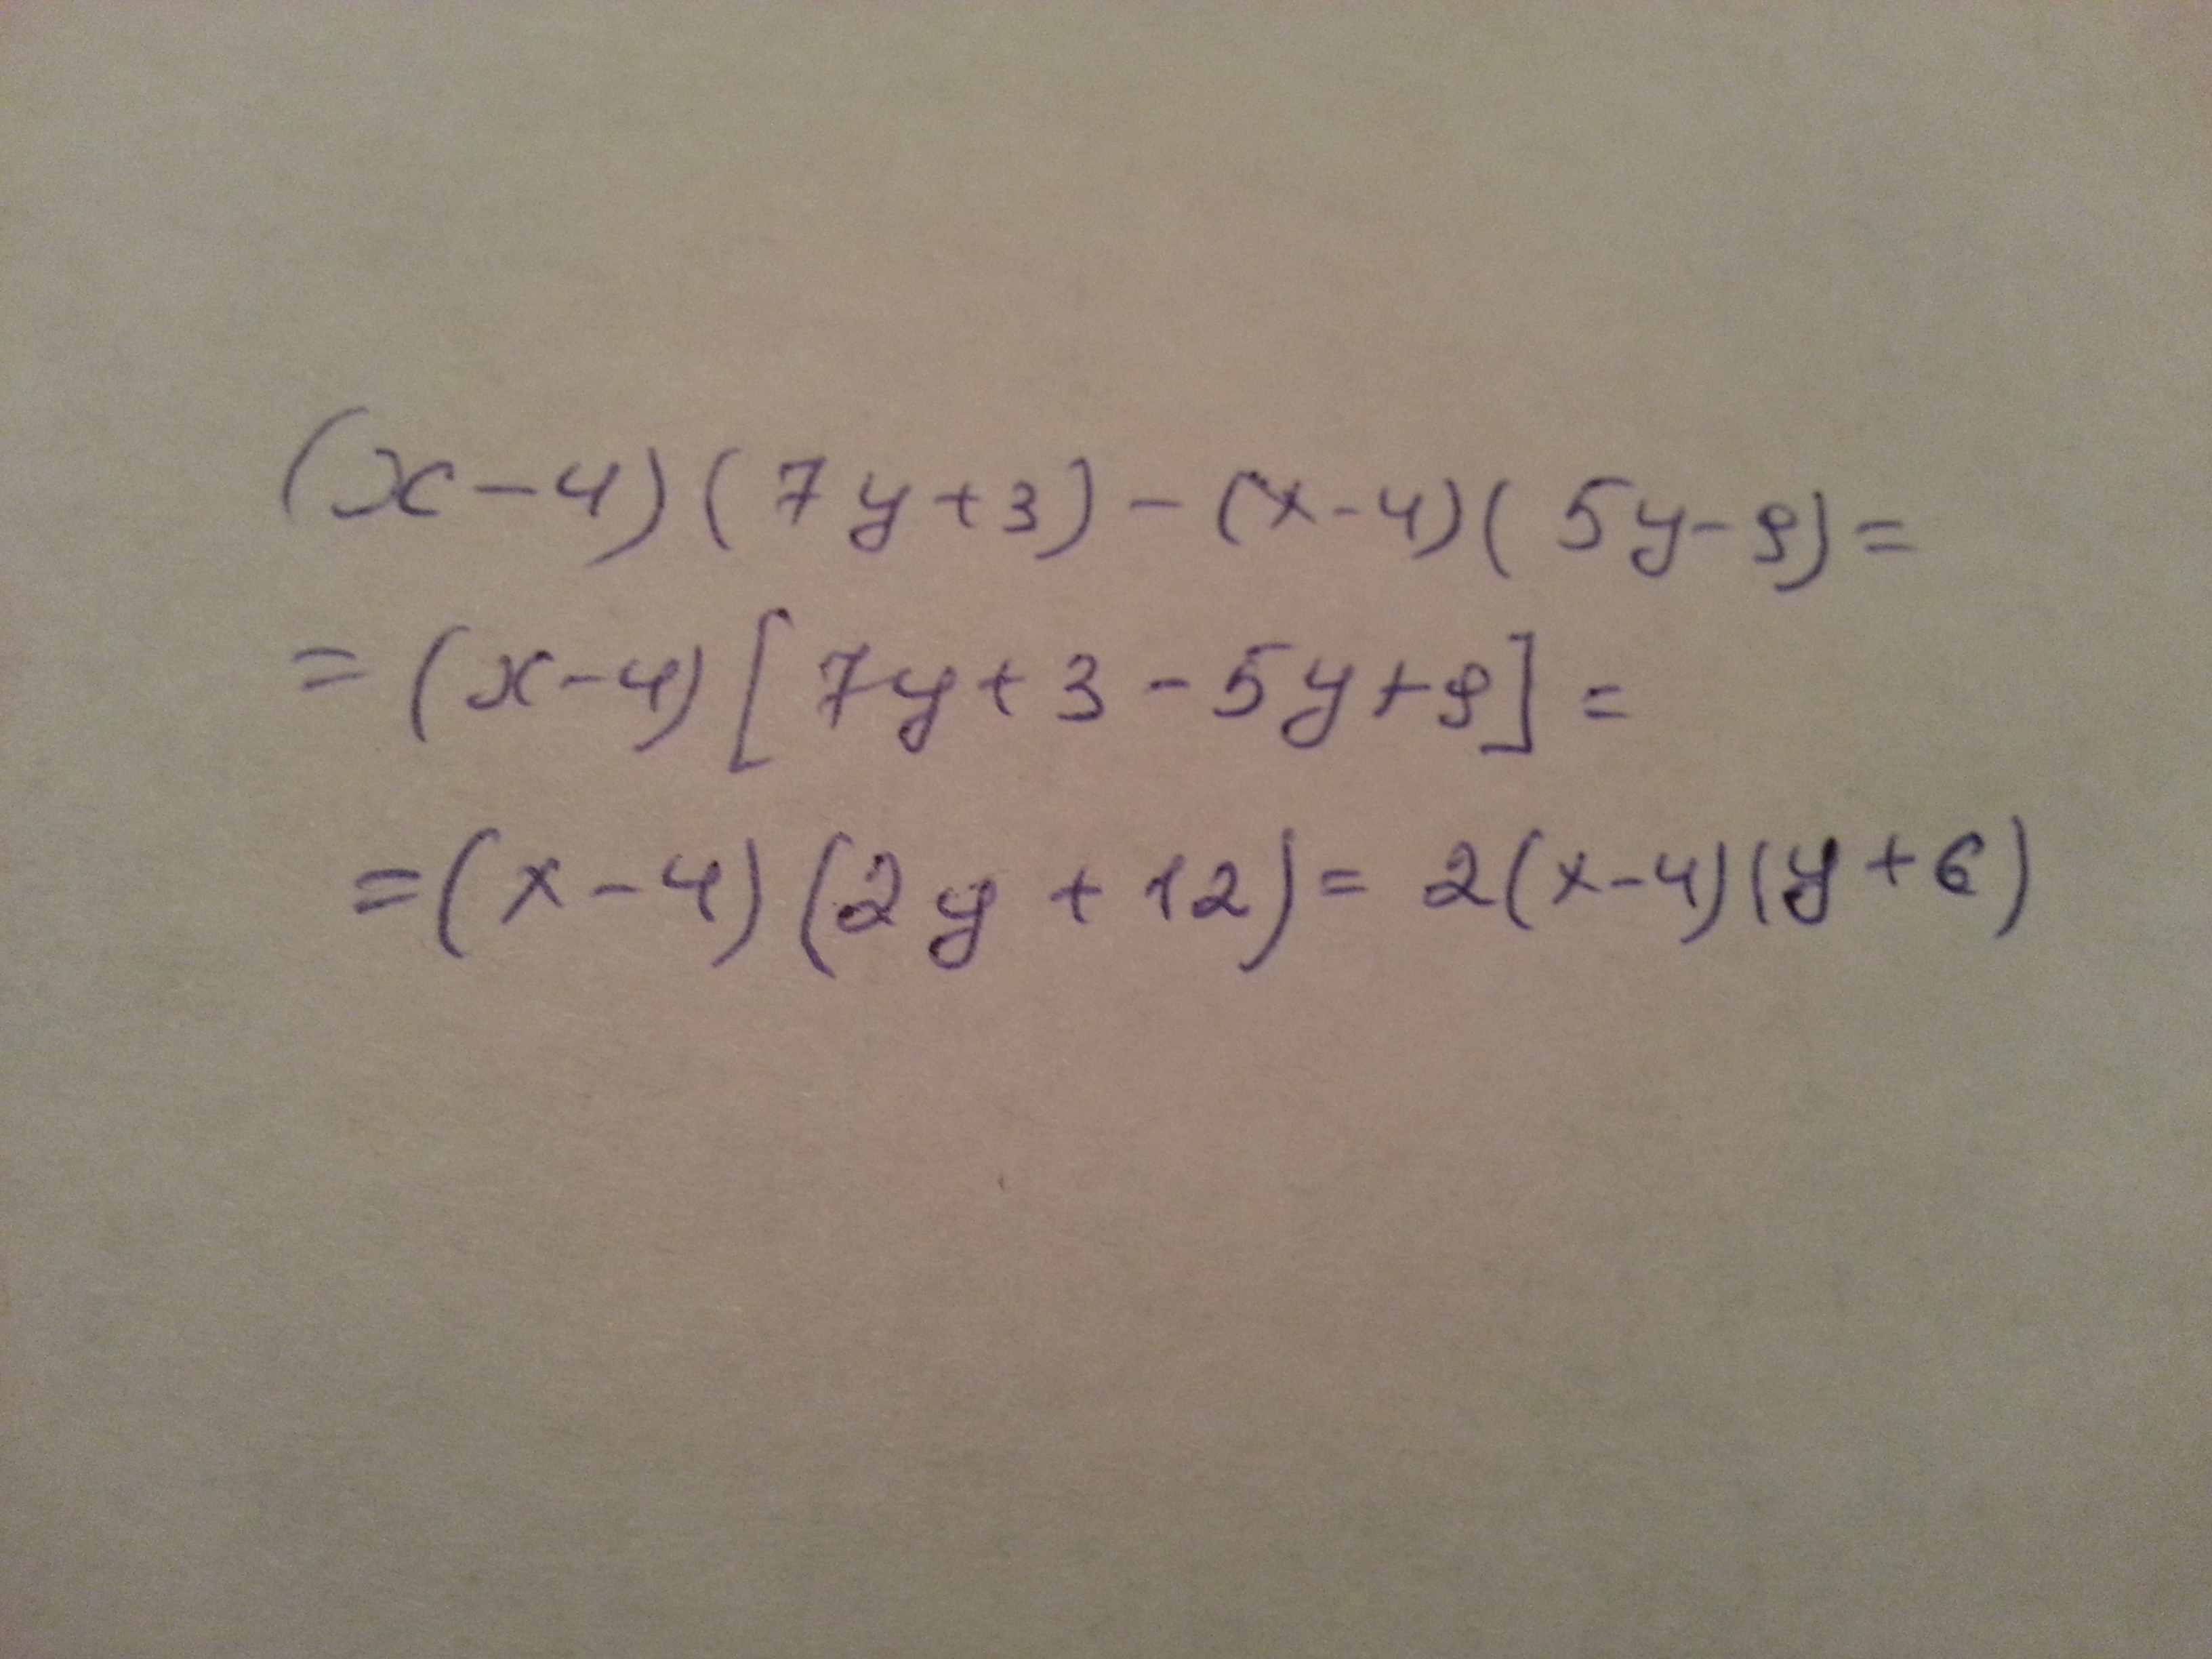 (x-4)(7y+3)-(x-4)(5y-9)=
=(x-4)[7y+3-5y+9]=
=(x-4)(2y+12)=2(x-4)(y+6)